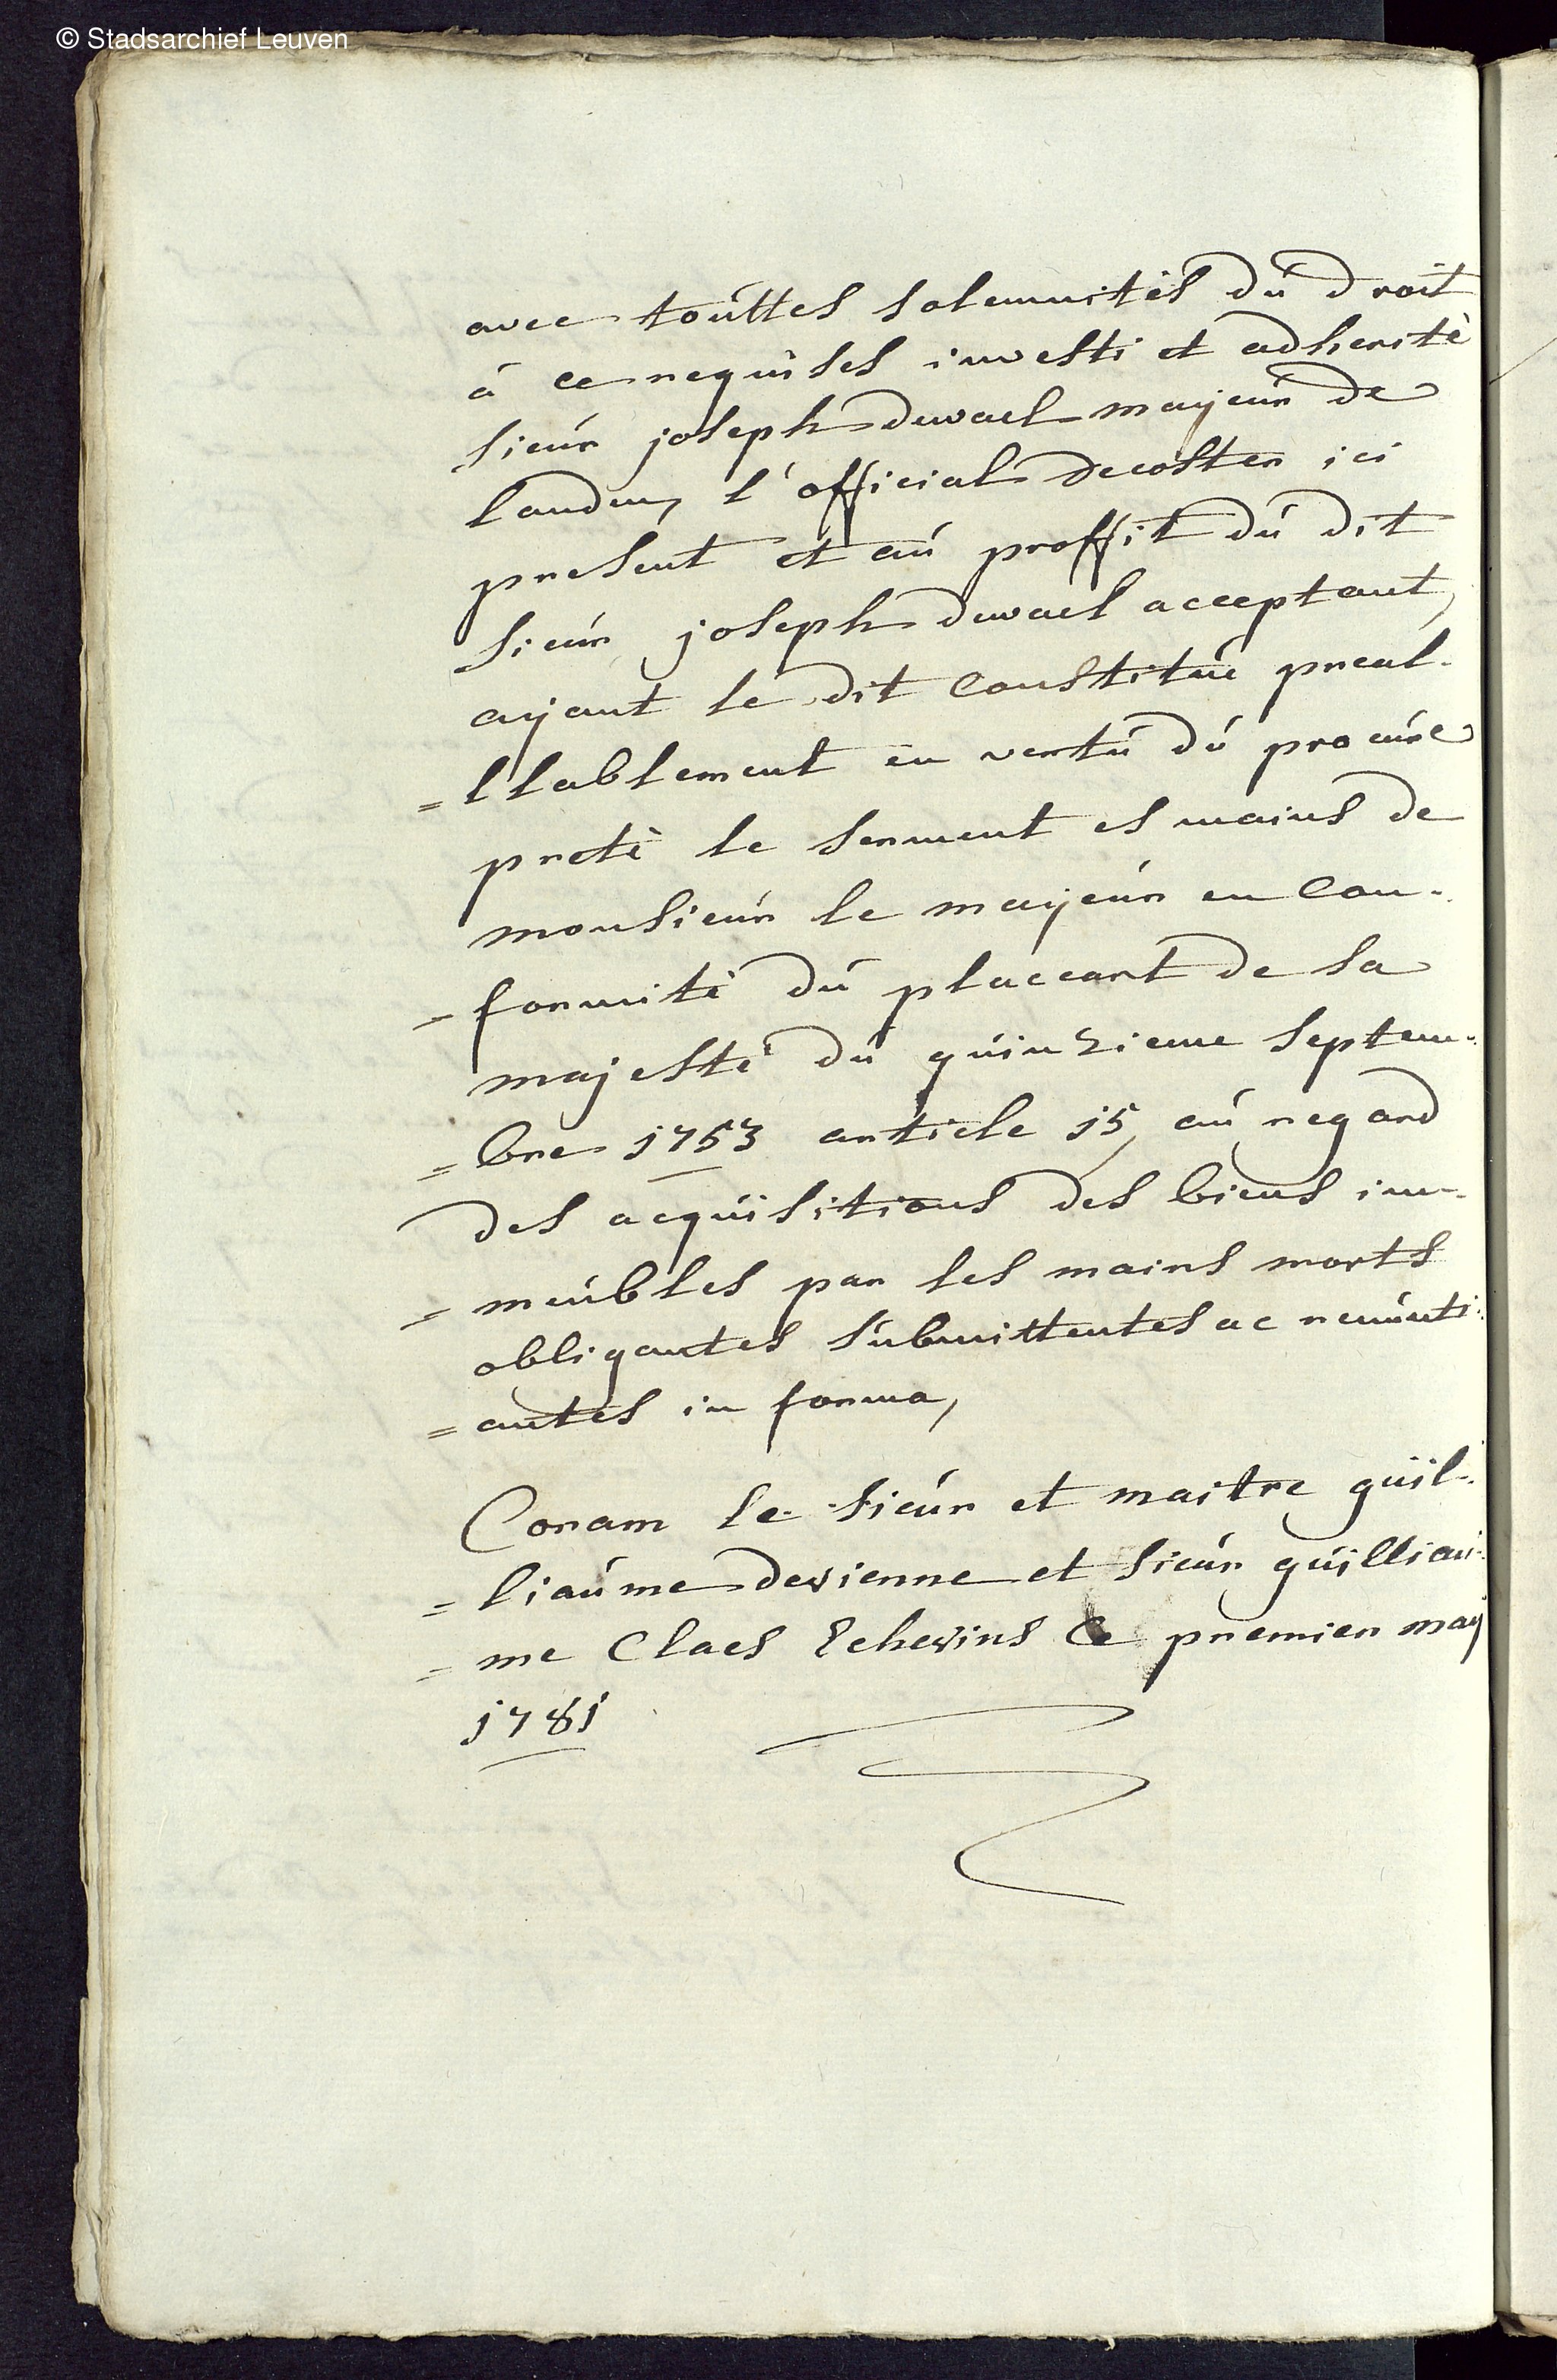 © Stadsarchief Leuven
avec toúttes solemnités dú droit
á ce requises investi et adherité
sieúr joseph dewael mayeúr de
landen, l'official decoster ici
present et aú proffit dú dit
sieúr joseph dewael acceptant,
ayant le dit constitúe preal-
=llablement en vertú dú procúre
preté le serment es mains de
monsieúr le mayeúr en con-
=formité dú placcart de sa
majesté dú qúinzieme septem-
=bre 1753 article 15, aú regard
des acqúisitions des biens im-
=meúbles par les mains morts
obligantes súbmittentes ac renúnti-
=antes in forma,
Coram le sieúr et maitre gúil-
=liaúme devienne et sieúr gúilliaú-
=me Claes Echevins Ce premier maÿ
1781